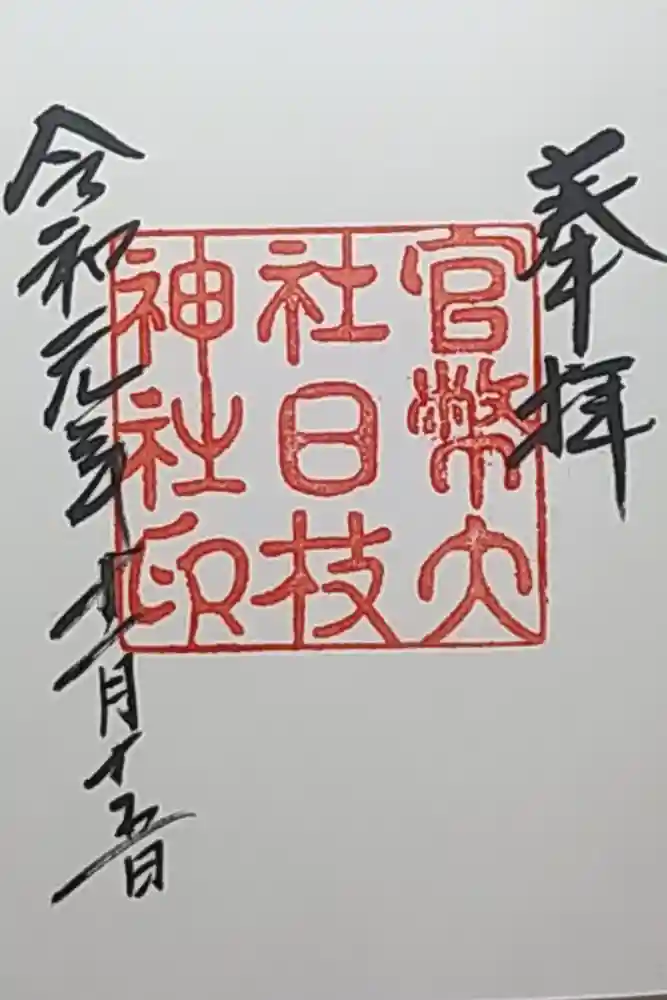 奉拝
官幣大
社日枝
神社印
令和元年十一月十五日